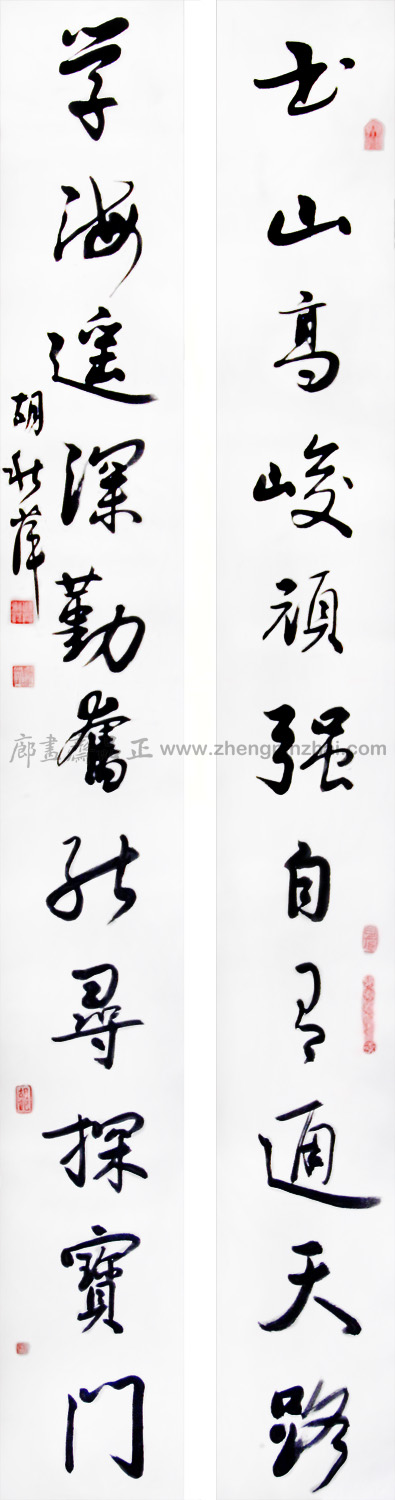 书山高峻顽强自有通天路
学海遥深勤奋能寻探寳门
胡秋萍
廊畫齋 正 www.zheng
zhai.com